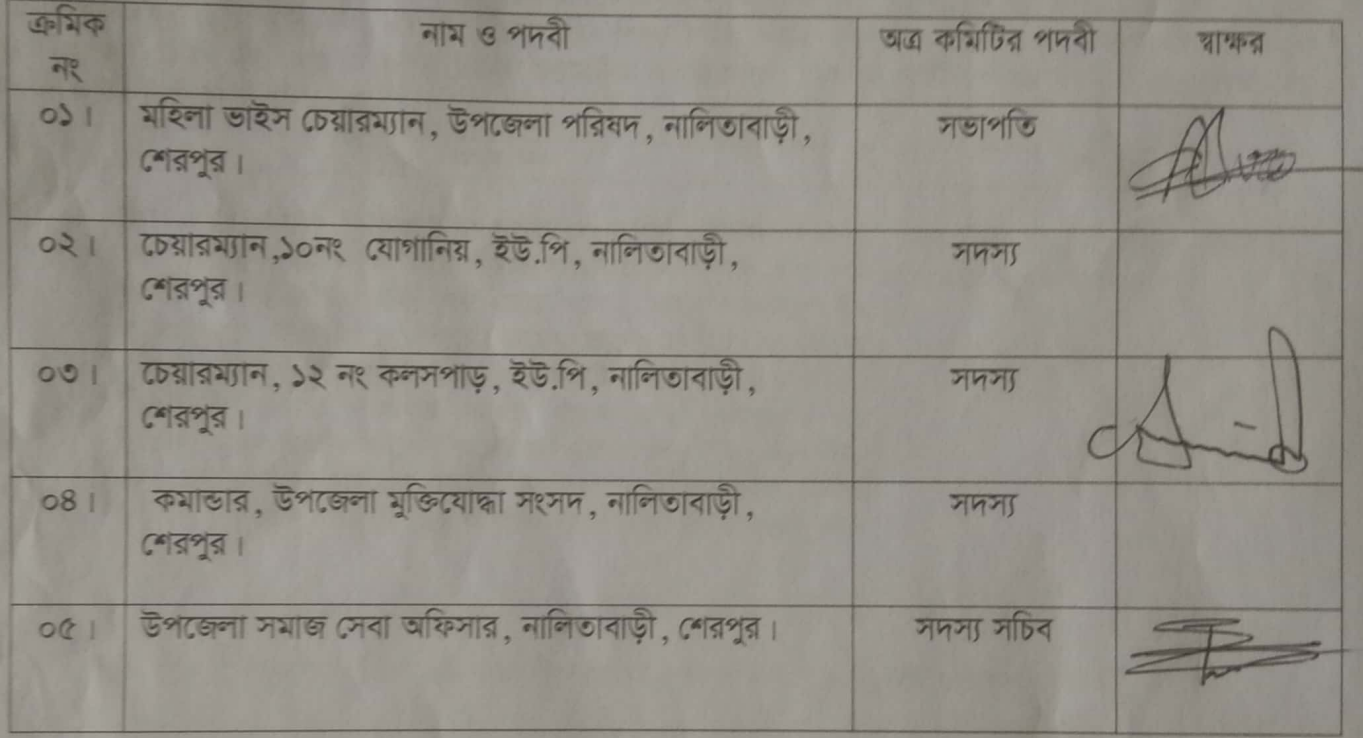 ক্রমিক নং নাম ও পদবী অত্র কমিটির পদবী স্বাক্ষর
০১। মহিলা ভাইস চেয়ারম্যান, উপজেলা পরিষদ, নালিতাবাড়ী, সভাপতি
শেরপুর।
০২। চেয়ারম্যান,১০নং যোগানিয়, ইউ.পি, নালিতাবাড়ী, সদস্য
শেরপুর।
০৩। চেয়ারম্যান, ১২ নং কলসপাড়, ইউ.পি, নালিতাবাড়ী, সদস্য
শেরপুর।
০৪। কমান্ডার, উপজেলা মুক্তিযোদ্ধা সংসদ, নালিতাবাড়ী, সদস্য
শেরপুর।
০৫। উপজেলা সমাজ সেবা অফিসার, নালিতাবাড়ী, শেরপুর। সদস্য সচিব